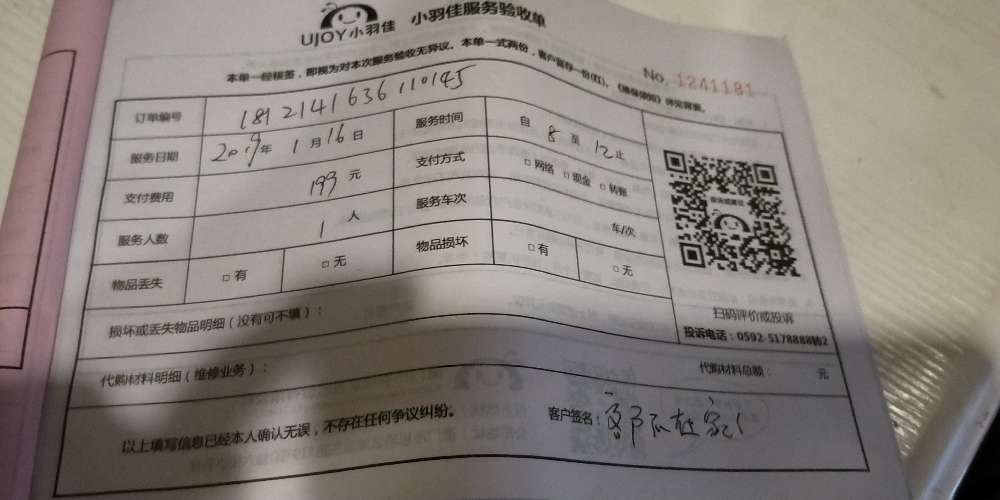 UJOY小羽佳 小羽佳服务验收单
本单一经核签，即视为对本次服务验收无异议。本单一式两份，客户留存一份(红)，《维保须知》详见背面。
No. 1241181
订单编号 1812141636110145
服务日期 2019年 1月16日 服务时间 自 8 至 12止
支付费用 199 元 支付方式 □ 网络 □ 现金 □ 转账
服务人数 1 人 服务车次 车/次
物品丢失 □ 有 □ 无 物品损坏 □ 有 □ 无
扫码评价或投诉
投诉电话：0592-5178888转2
损坏或丢失物品明细（没有可不填）：
代购材料明细（维修业务）： 代购材料总额： 元
以上填写信息已经本人确认无误，不存在任何争议纠纷。 客户签名：客户不在家